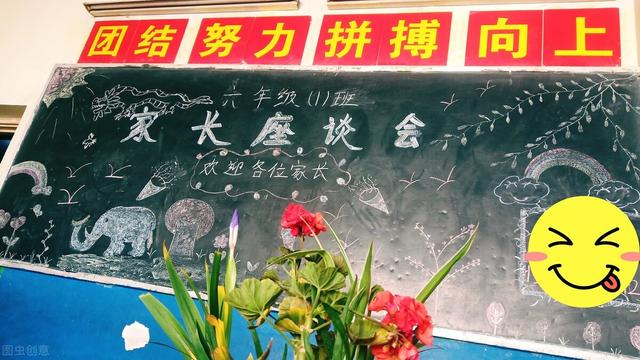 团结 努力 拼搏 向上
六年级(1)班
家长座谈会
欢迎各位家长
图虫创意